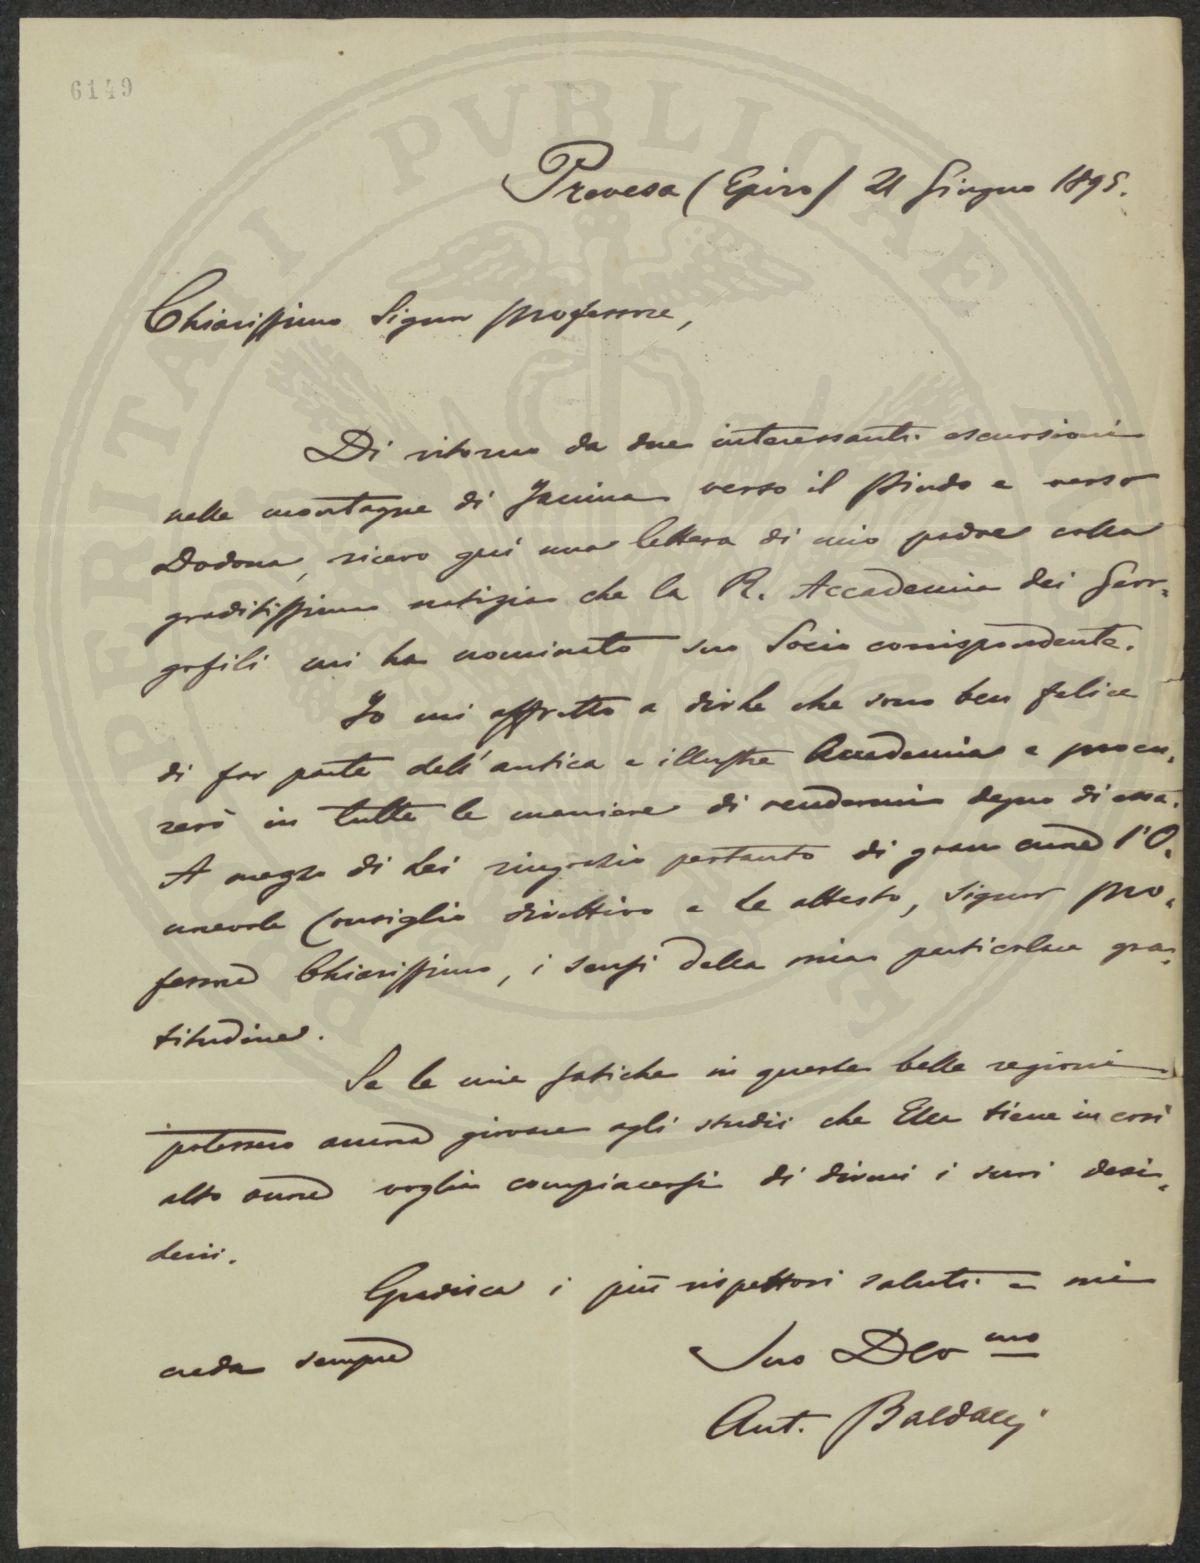 6149
PROSPERITATI PVBLICAE AVGENDAE
Prevesa (Epiro) 21 Giugno 1895.
Chiarissimo Signor professore,
Di ritorno da due interessanti escursioni
nelle montagne di Janina verso il Pindo e verso
Dodona, ricevo qui una lettera di mio padre colla
graditissima notizia che la R. Accademia dei Geor-
gofili mi ha nominato suo Socio corrispondente.
Io mi affretto a dirle che sono ben felice
di far parte dell'antica e illustre Accademia e procu-
rerò in tutte le maniere di rendermi degno di essa.
A mezzo di Lei ringrazio pertanto di gran cuore l'O-
norevole Consiglio direttivo e le attesto, signor pro-
fessore Chiarissimo, i sensi della mia particolare gra-
titudine.
Se le mie fatiche in queste belle regioni
potessero ancora giovare agli studii che Ella tiene in così
alto onore voglia compiacersi di dirmi i suoi desi-
derii.
Gradisca i più rispettosi saluti e mi
creda sempre
Suo Devmo
Ant. Baldacci